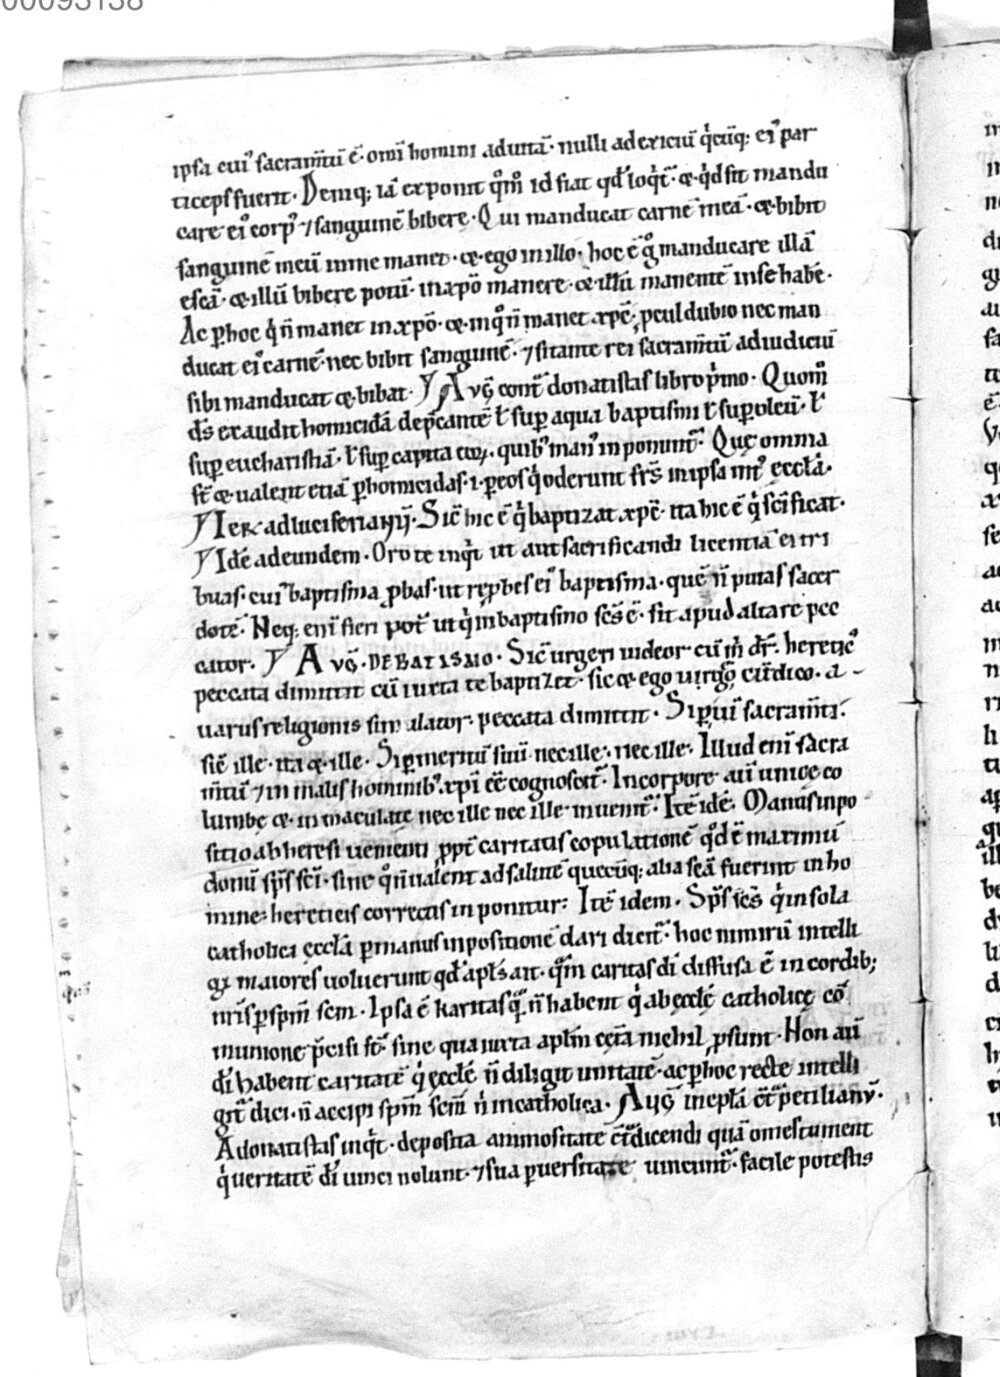 00093138
ipsa cuiꝰ sacram̄tū ē· om̄i homini ad uitā· nulli ad exiciū q̇cūq; eiꝰ par
ticeps fuerit· Deniq; iā exponit q̊m̊ id fiat qđ loq̇t̄· & q̇d sit mandu
care eiꝰ corpꝰ ⁊ sanguinē bibere· Qui manducat carnē meā· & bibit
sanguinē meū in me manet· & ego in illo· hoc ē g̊ manducare illā
escā· & illū bibere potū· in xp̄o manere· & illū manentē in se habe·
Ac ꝑ hoc q̇ n̄ manet in xp̄o· & in q̊ n̄ manet xp̄c· ꝓcul dubio nec man
ducat eiꝰ carnē· nec bibit sanguinē· ⁊ si tante rei sacram̄tū ad iudiciū
sibi manducat & bibat· Avḡ cont̄ donatistas libro p̄mo· Quom̊
ds̄ exaudit homicidā dep̄cantē ł suꝑ aqua baptismi ł suꝑ oleū· ł
suꝑ eucharistiā· ł suꝑ capita eoꝝ· quibꝰ manꝰ inponunt̄· Quę omnia
st̄ & ualent etiā ꝑ homicidas· i· ꝑ eos q̇ oderunt frs̄ in ipsa intꝰ eccl̄a·
Ier ad luciferianū· Sic̄ hic ē q̇ baptizat xp̄c· ita hic ē q̇ sc̄ificat·
Idē ad eundem· Oro te inq̇t ut aut sacrificandi licentiā ei tri
buas· cuiꝰ baptisma ꝓbas· ut rep̱bes eiꝰ baptisma· quē n̄ putas sacer
dotē· Neq; enī fieri pot̄ ut q̇ in baptismo sc̄s ē· sit apud altare pec
cator· Avḡ· de batismo· Sic̄ urgeri uideor· cū m̄ dr̄· hereticꝰ
peccata dimittit cū iuxta te baptizet· sic & ego uirgō cit̄ dico· a
uarus religionis simulator· peccata dimittit· Si ꝑ uī sacram̄ti·
sic̄ ille· ita & ille· Si ꝑ meritū suū· nec ille· nec ille· Illud enī sacra
m̄tū ⁊ in malis hominibꝰ xp̄i eē cognoscit̄· In corpore aū unicę co
lumbę & inmaculatę nec ille nec ille inuenit̄· Itē idē· Manus inpo
sitio ab heresi uenienti ꝓpt̄ caritatis copulationē qd̊ ē maximū
donū sp̄s sc̄i· sine q̊ n̄ ualent ad salutē quecūq; alia sc̄a fuerint in ho
mine· hereticis correctis inponitur· Itē idem· Sp̄s sc̄s q̇ in sola
catholica eccl̄a ꝑ manus inpositionē dari dicit̄· hoc nimirū intelli
gi maiores uoluerunt qđ apl̄s ait· qm̄ caritas dī diffusa ē in cordib;
nr̄is ꝑ sp̄m sc̄m· Ipsa ē karitas quā n̄ habent q̇ ab eccl̄ę catholicę cō
munione p̄cisi st̄· sine qua iuxta apl̄m cet̄a nichil ꝓsunt· Non aū
dī habent caritatē q̇ eccl̄ę n̄ diligit unitatē· ac ꝑ hoc recte intelli
git̄ dici· n̄ accipi sp̄m sc̄m n̄ in catholica· Avḡ in epl̄a cōt̄ petilianū·
A donatistas inq̇t· deposita animositate cōt̄dicendi quā omes
q̇ ueritatē dī uinci nolunt· ⁊ sua ꝑuersitate uincunt̄· facile potestis